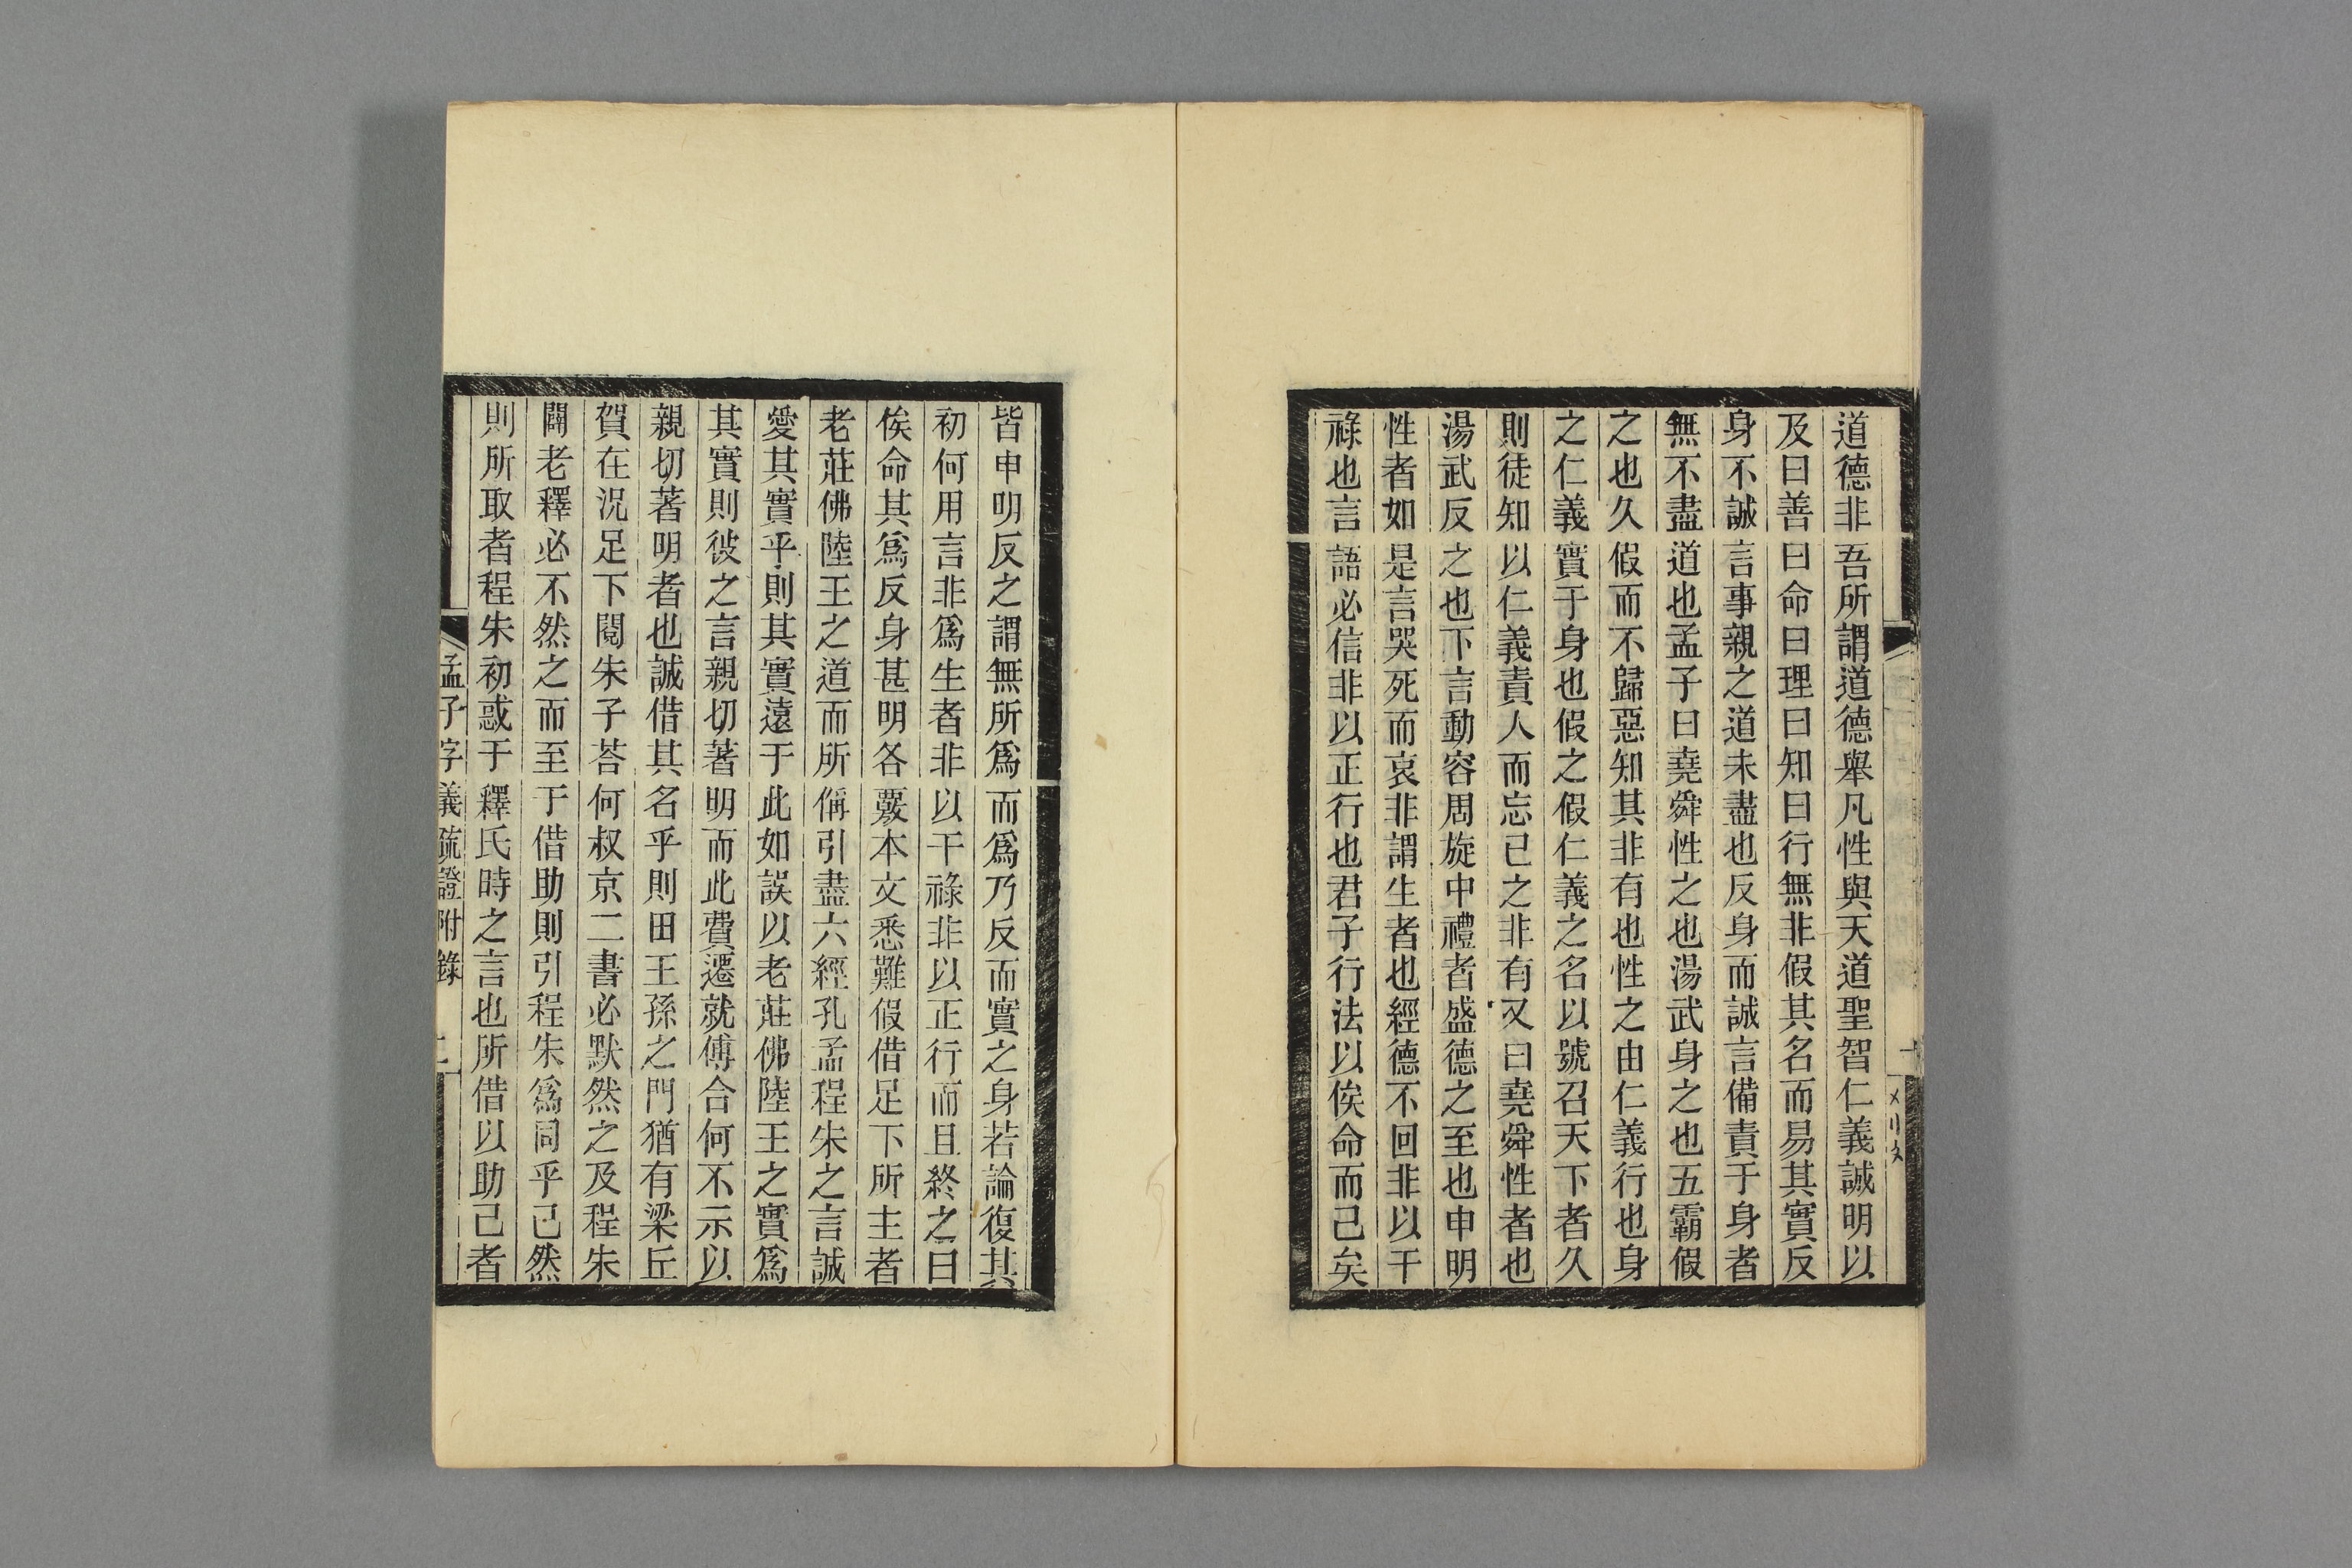 道德非吾所謂道德舉凡性與天道聖智仁義誠明以
及曰善曰命曰理曰知曰行無非假其名而易其實反
身不誠言事親之道未盡也反身而誠言備責于身者
無不盡道也孟子曰堯舜性之也湯武身之也五霸假
之也久假而不歸惡知其非有也性之由仁義行也身
之仁義實于身也假之假仁義之名以號召天下者久
則徒知以仁義責人而忘己之非有又曰堯舜性者也
湯武反之也下言動容周旋中禮者盛德之至也申明
性者如是言哭死而哀非謂生者也經德不回非以干
祿也言語必信非以正行也君子行法以俟命而已矣
皆申明反之謂無所爲而爲乃反而實之身若論復其
初何用言非爲生者非以干祿非以正行而且終之曰
俟命其爲反身甚明各覈本文悉難假借足下所主者
老莊佛陸王之道而所稱引盡六經孔孟程朱之言誠
愛其實乎則其實遠于此如誤以老莊佛陸王之實爲
其實則彼之言親切著明而此費遷就傅合何不示以
親切著明者也誠借其名乎則田王孫之門猶有梁丘
賀在況足下閱朱子荅何叔京二書必默然之及程朱
闢老釋必不然之而至于借助則引程朱爲同乎己然
則所取者程朱初惑于釋氏時之言也所借以助己者
孟子字義疏證附錄